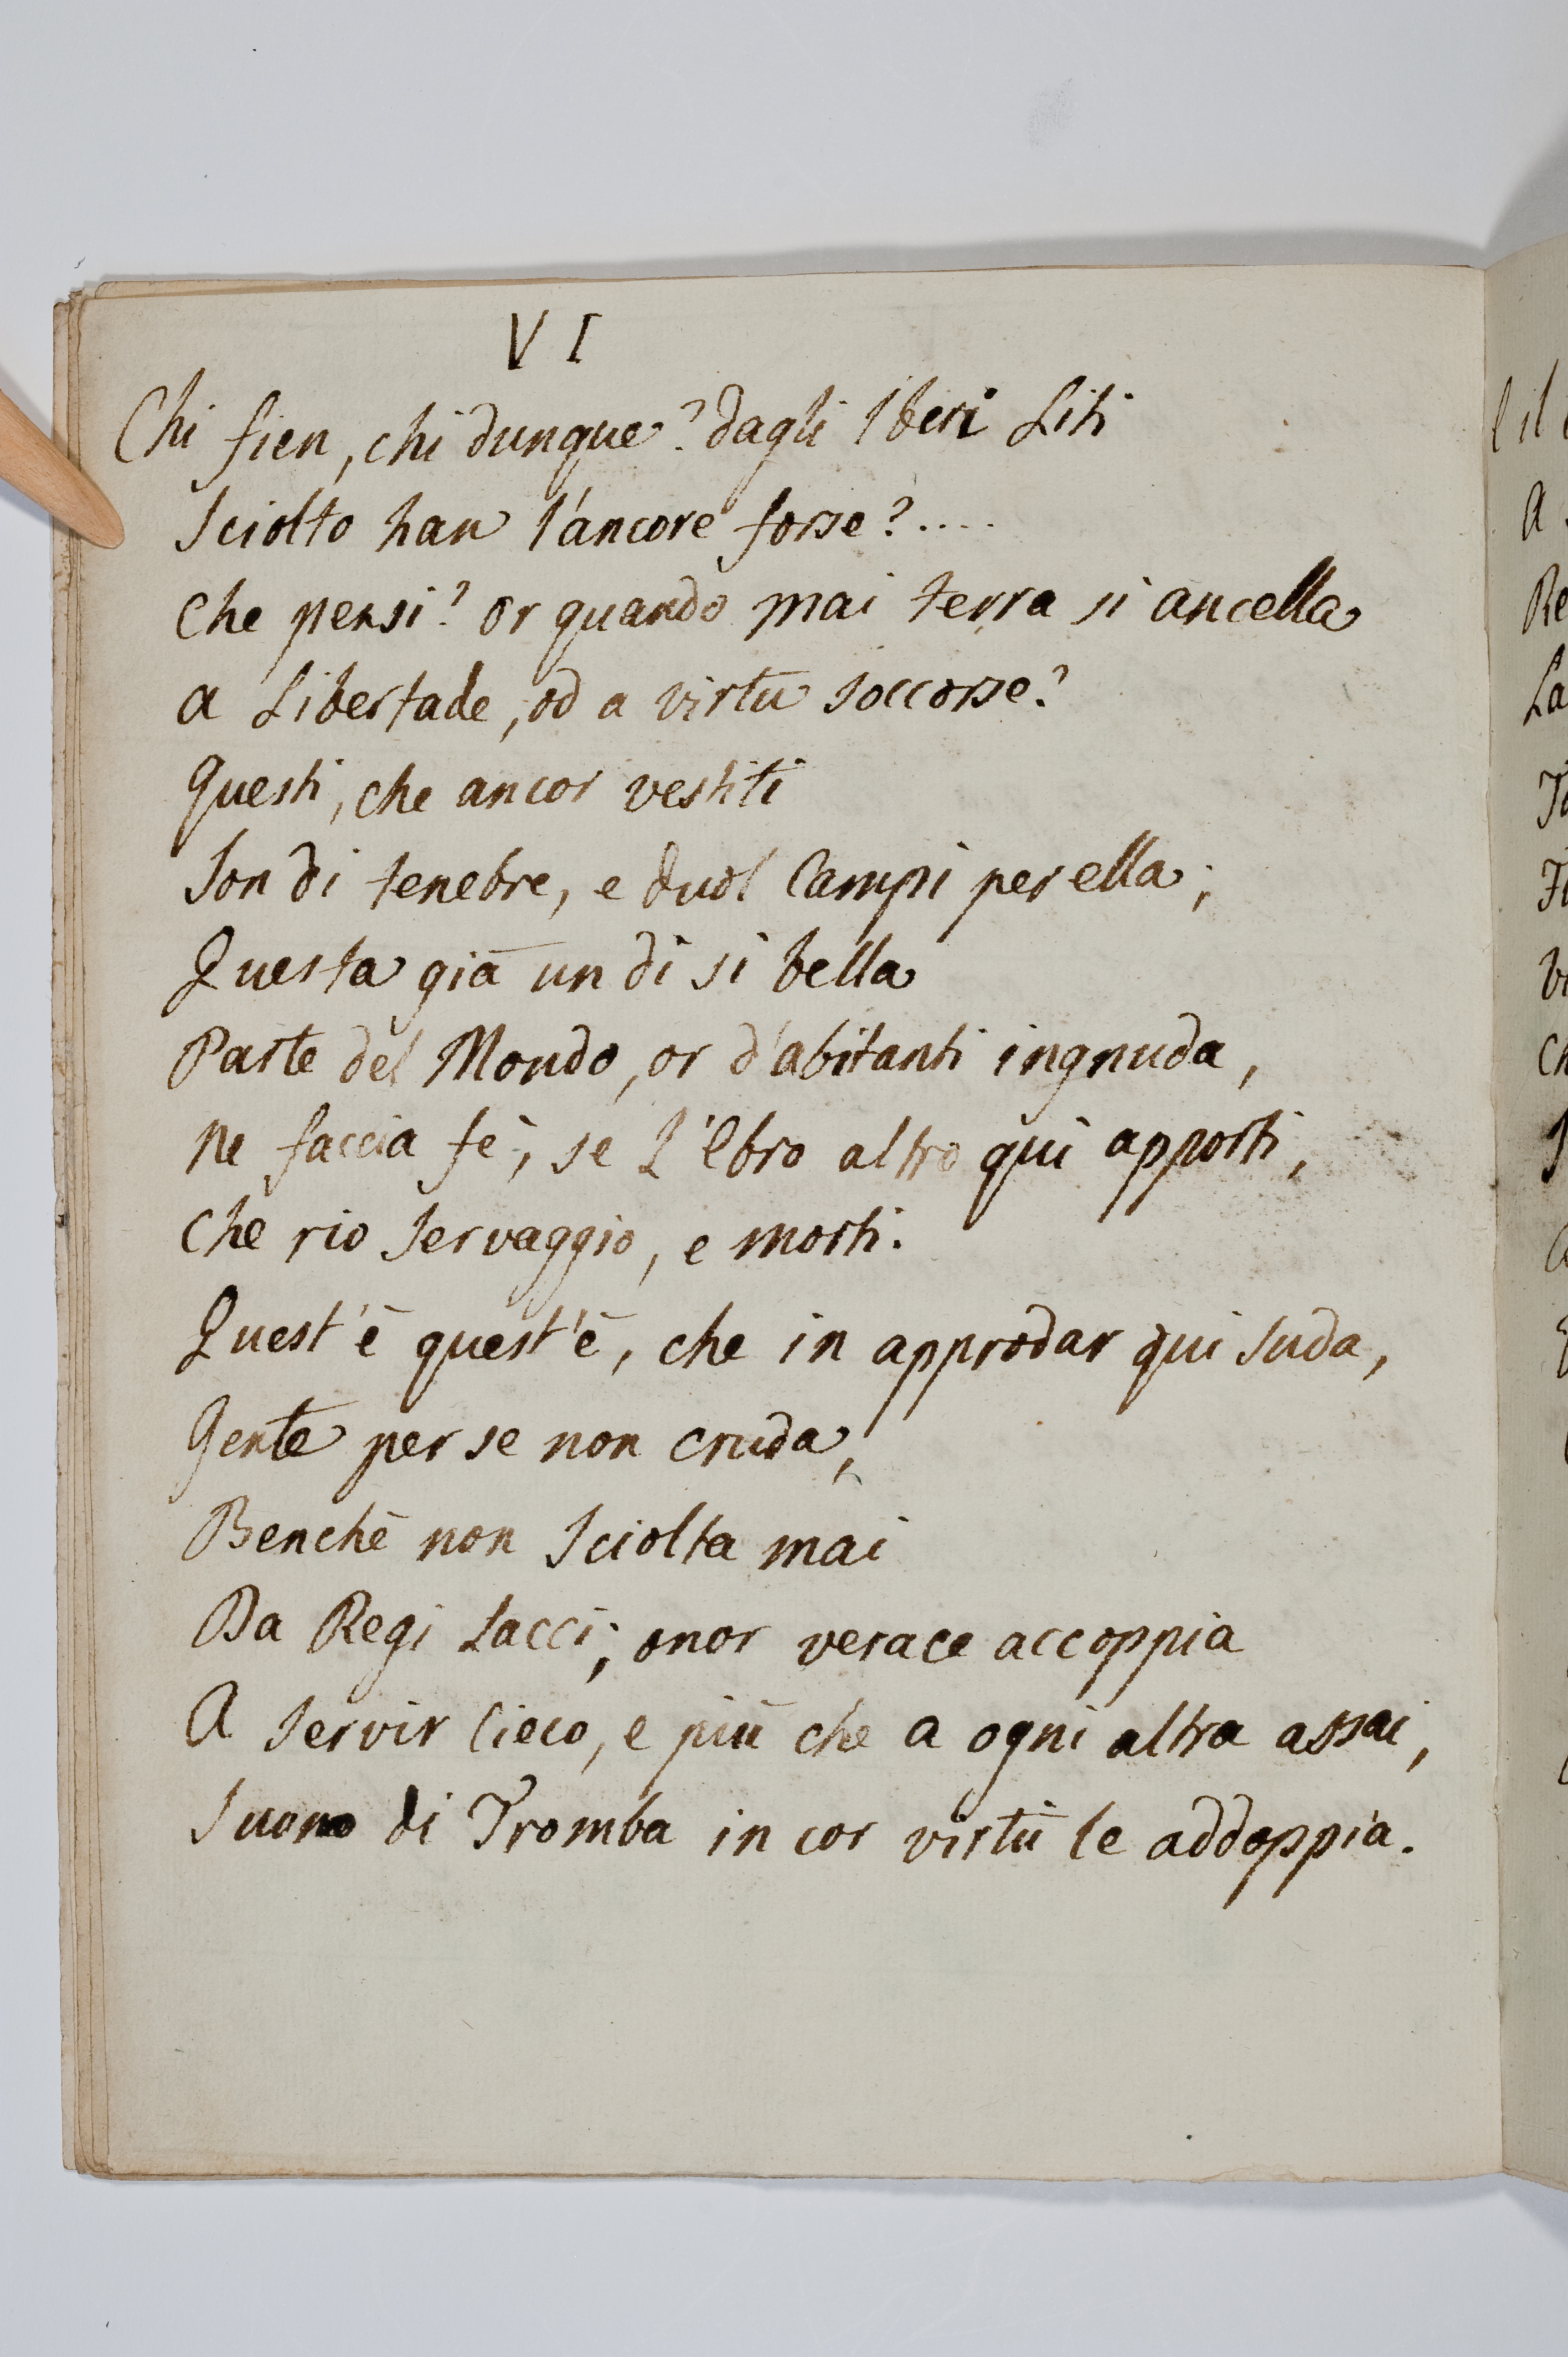 VI
Chi fien, chi dunque? dagli Iberi Liti
Sciolto han l'ancore forse?....
Che pensi? or quando mai terra sì ancella
a Libertade, od a virtù soccorse?
Questi, che ancor vestiti
Son di tenebre, e duol Campi per ella;
Questa già un dì sì bella
Parte del Mondo, or d'abitanti ingnuda,
Ne faccia fè, se l'Ebro altro quì apporti,
Che rio Servaggio, e morti.
Quest'è quest'è, che in approdar quì suda,
Gente per se non cruda,
Benchè non Sciolta mai
Da Regi Lacci; onor verace accoppia
A Servir Cieco, e più che a ogni altra assai,
Suono di Tromba in cor virtù le addoppia.
l il
A
Re
La